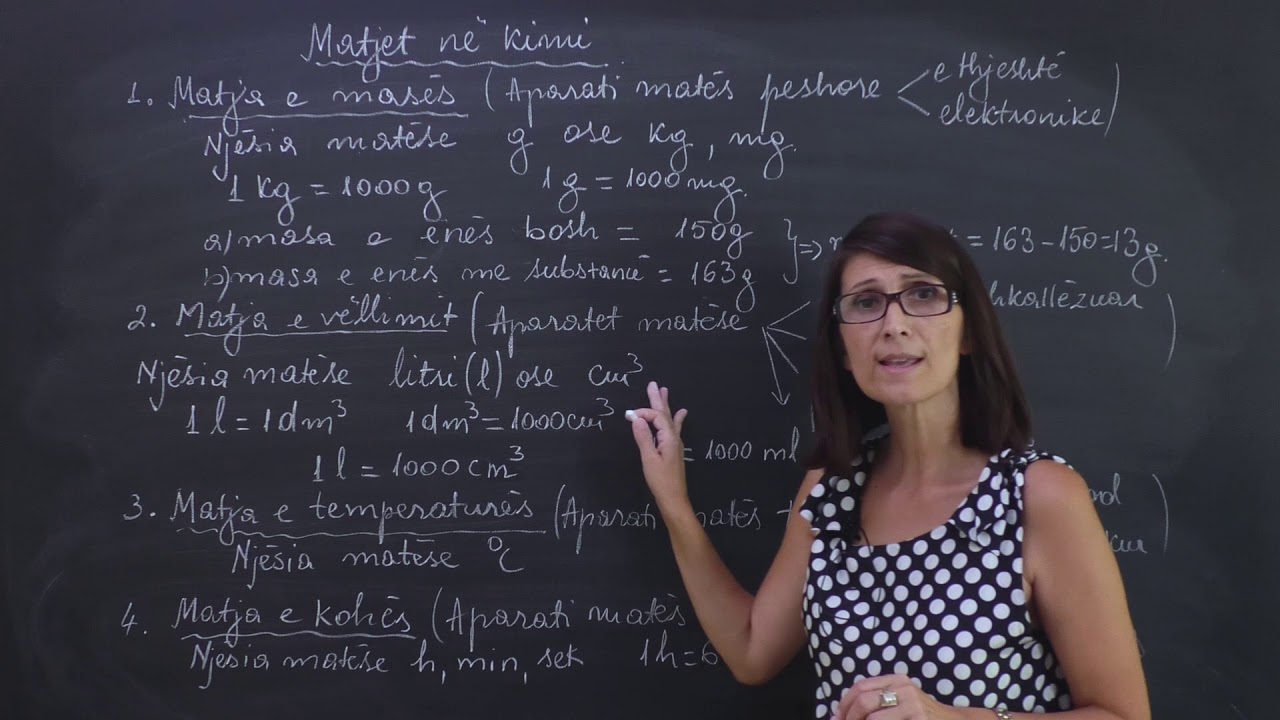 Matjet në kimi
1. Matja e masës (Aparati matës peshore
e thjeshtë
elektronike)
Njësia matëse g ose kg, mg.
1 kg = 1000 g 1 g = 1000 mg.
a) masa e enës bosh = 150g
b) masa e enës me substancë = 163g
} => = 163 - 150 = 13g.
2. Matja e vëllimit (Aparatet matëse
Njësia matëse litri (l) ose cm³
1 l = 1 dm³ 1 dm³ = 1000 cm³
1 l = 1000 cm³ = 1000 ml
3. Matja e temperaturës (Aparati matës
Njësia matëse °C
4. Matja e kohës (Aparati matës
Njësia matëse h, min, sek 1h = 6